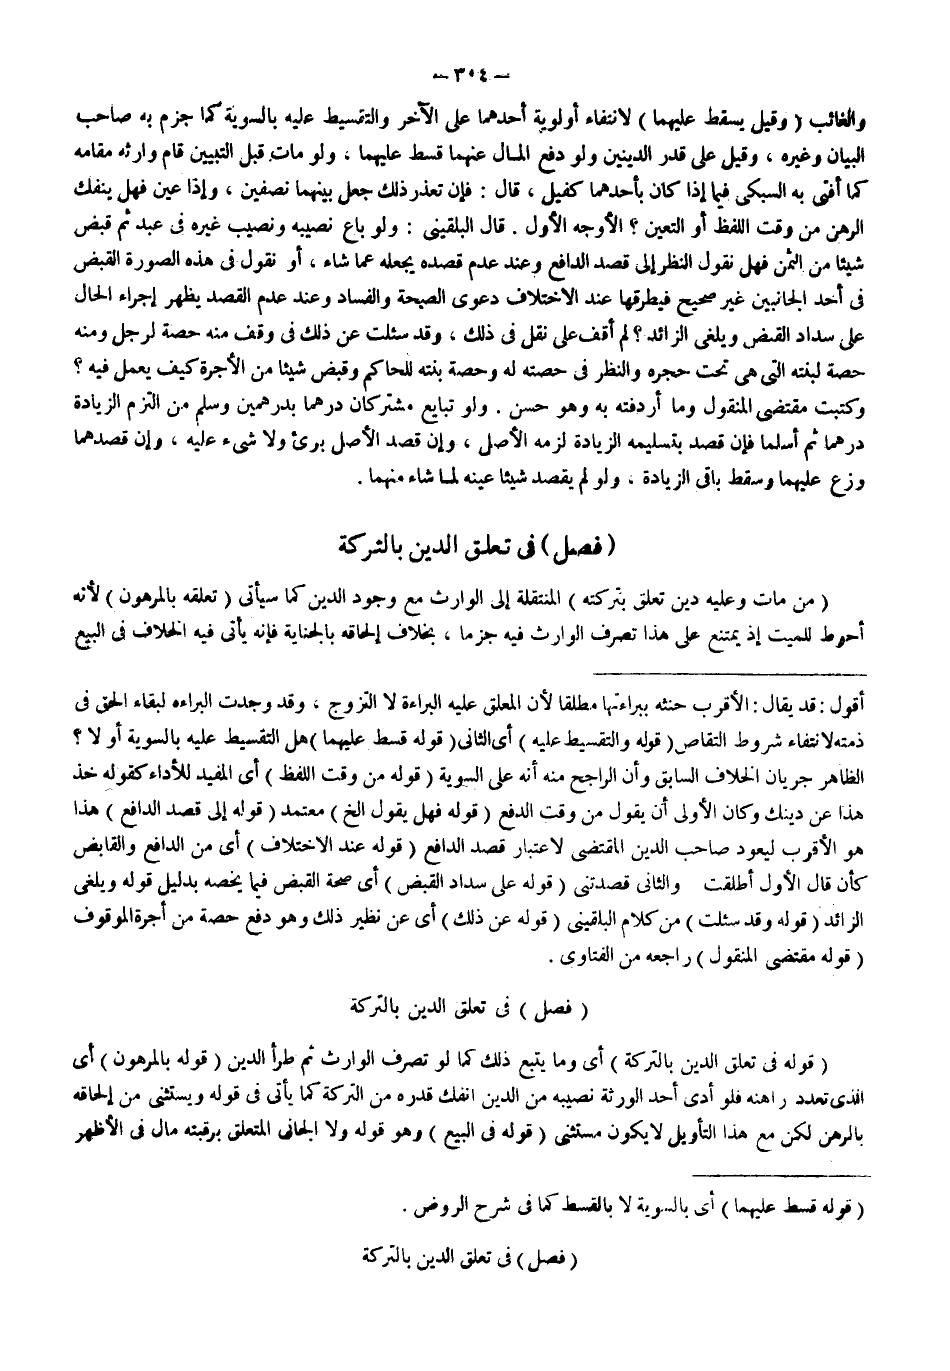 — ٣٠٤ —
والغائب ( وقيل يسقط عليهما ) لانتفاء أولوية أحدهما على الآخر والتقسيط عليه بالسوية كما جزم به صاحب
البيان وغيره ، وقيل على قدر الدينين ولو دفع المال عنهما قسط عليهما ، ولو مات قبل التبيين قام وارثه مقامه
كما أفتى به السبكى فيما إذا كان بأحدهما كفيل ، قال : فإن تعذر ذلك جعل بينهما نصفين ، وإذا عين فهل ينفك
الرهن من وقت اللفظ أو التعين ؟ الأوجه الأول . قال البلقينى : ولو باع نصيبه ونصيب غيره فى عبد ثم قبض
شيئا من الثمن فهل نقول النظر إلى قصد الدافع وعند عدم قصده يجعله عما شاء ، أو نقول فى هذه الصورة القبض
فى أحد الجانبين غير صحيح فيطرقها عند الاختلاف دعوى الصحة والفساد وعند عدم القصد يظهر إجراء الحال
على سداد القبض ويلغى الزائد ؟ لم أقف على نقل فى ذلك ، وقد سئلت عن ذلك فى وقف منه حصة لرجل ومنه
حصة لبنته التى هى تحت حجره والنظر فى حصته له وحصة بنته للحاكم وقبض شيئا من الأجرة كيف يعمل فيه ؟
وكتبت مقتضى المنقول وما أردفته به وهو حسن . ولو تبايع مشتركان درهما بدرهمين وسلم من التزم الزيادة
درهما ثم أسلما فإن قصد بتسليمه الزيادة لزمه الأصل ، وإن قصد الأصل برئ ولا شىء عليه ، وإن قصدهما
وزع عليهما وسقط باقى الزيادة ، ولو لم يقصد شيئا عينه لما شاء منهما .
( فصل ) فى تعلق الدين بالتركة
( من مات وعليه دين تعلق بتركته ) المنتقلة إلى الوارث مع وجود الدين كما سيأتى ( تعلقه بالمرهون ) لأنه
أحوط للميت إذ يمتنع على هذا تصرف الوارث فيه جزما ، بخلاف إلحاقه بالجناية فإنه يأتى فيه الخلاف فى البيع
أقول : قد يقال : الأقرب حنثه ببراءتها مطلقا لأن المعلق عليه البراءة لا التزوج ، وقد وجدت البراءه لبقاء الحق فى
ذمته لانتفاء شروط التقاص ( قوله والتقسيط عليه ) أى الثانى ( قوله قسط عليهما ) هل التقسيط عليه بالسوية أو لا ؟
الظاهر جريان الخلاف السابق وأن الراجح منه أنه على السوية ( قوله من وقت اللفظ ) أى المفيد للأداء كقوله خذ
هذا عن دينك وكان الأولى أن يقول من وقت الدفع ( قوله فهل يقول الخ ) معتمد ( قوله إلى قصد الدافع ) هذا
هو الأقرب ليعود صاحب الدين المقتضى لاعتبار قصد الدافع ( قوله عند الاختلاف ) أى من الدافع والقابض
كأن قال الأول أطلقت والثانى قصدتنى ( قوله على سداد القبض ) أى صحة القبض فيما يخصه بدليل قوله ويلغى
الزائد ( قوله وقد سئلت ) من كلام البلقينى ( قوله عن ذلك ) أى عن نظير ذلك وهو دفع حصة من أجرة الموقوف
( قوله مقتضى المنقول ) راجعه من الفتاوى .
( فصل ) فى تعلق الدين بالتركة
( قوله فى تعلق الدين بالتركة ) أى وما يتبع ذلك كما لو تصرف الوارث ثم طرأ الدين ( قوله بالمرهون ) أى
الذى تعدد راهنه فلو أدى أحد الورثة نصيبه من الدين انفك قدره من التركة كما يأتى فى قوله ويستثنى من إلحاقه
بالرهن لكن مع هذا التأويل لا يكون مستثنى ( قوله فى البيع ) وهو قوله ولا الجانى المتعلق برقبته مال فى الأظهر
( قوله قسط عليهما ) أى بالسوية لا بالقسط كما فى شرح الروض .
( فصل ) فى تعلق الدين بالتركة